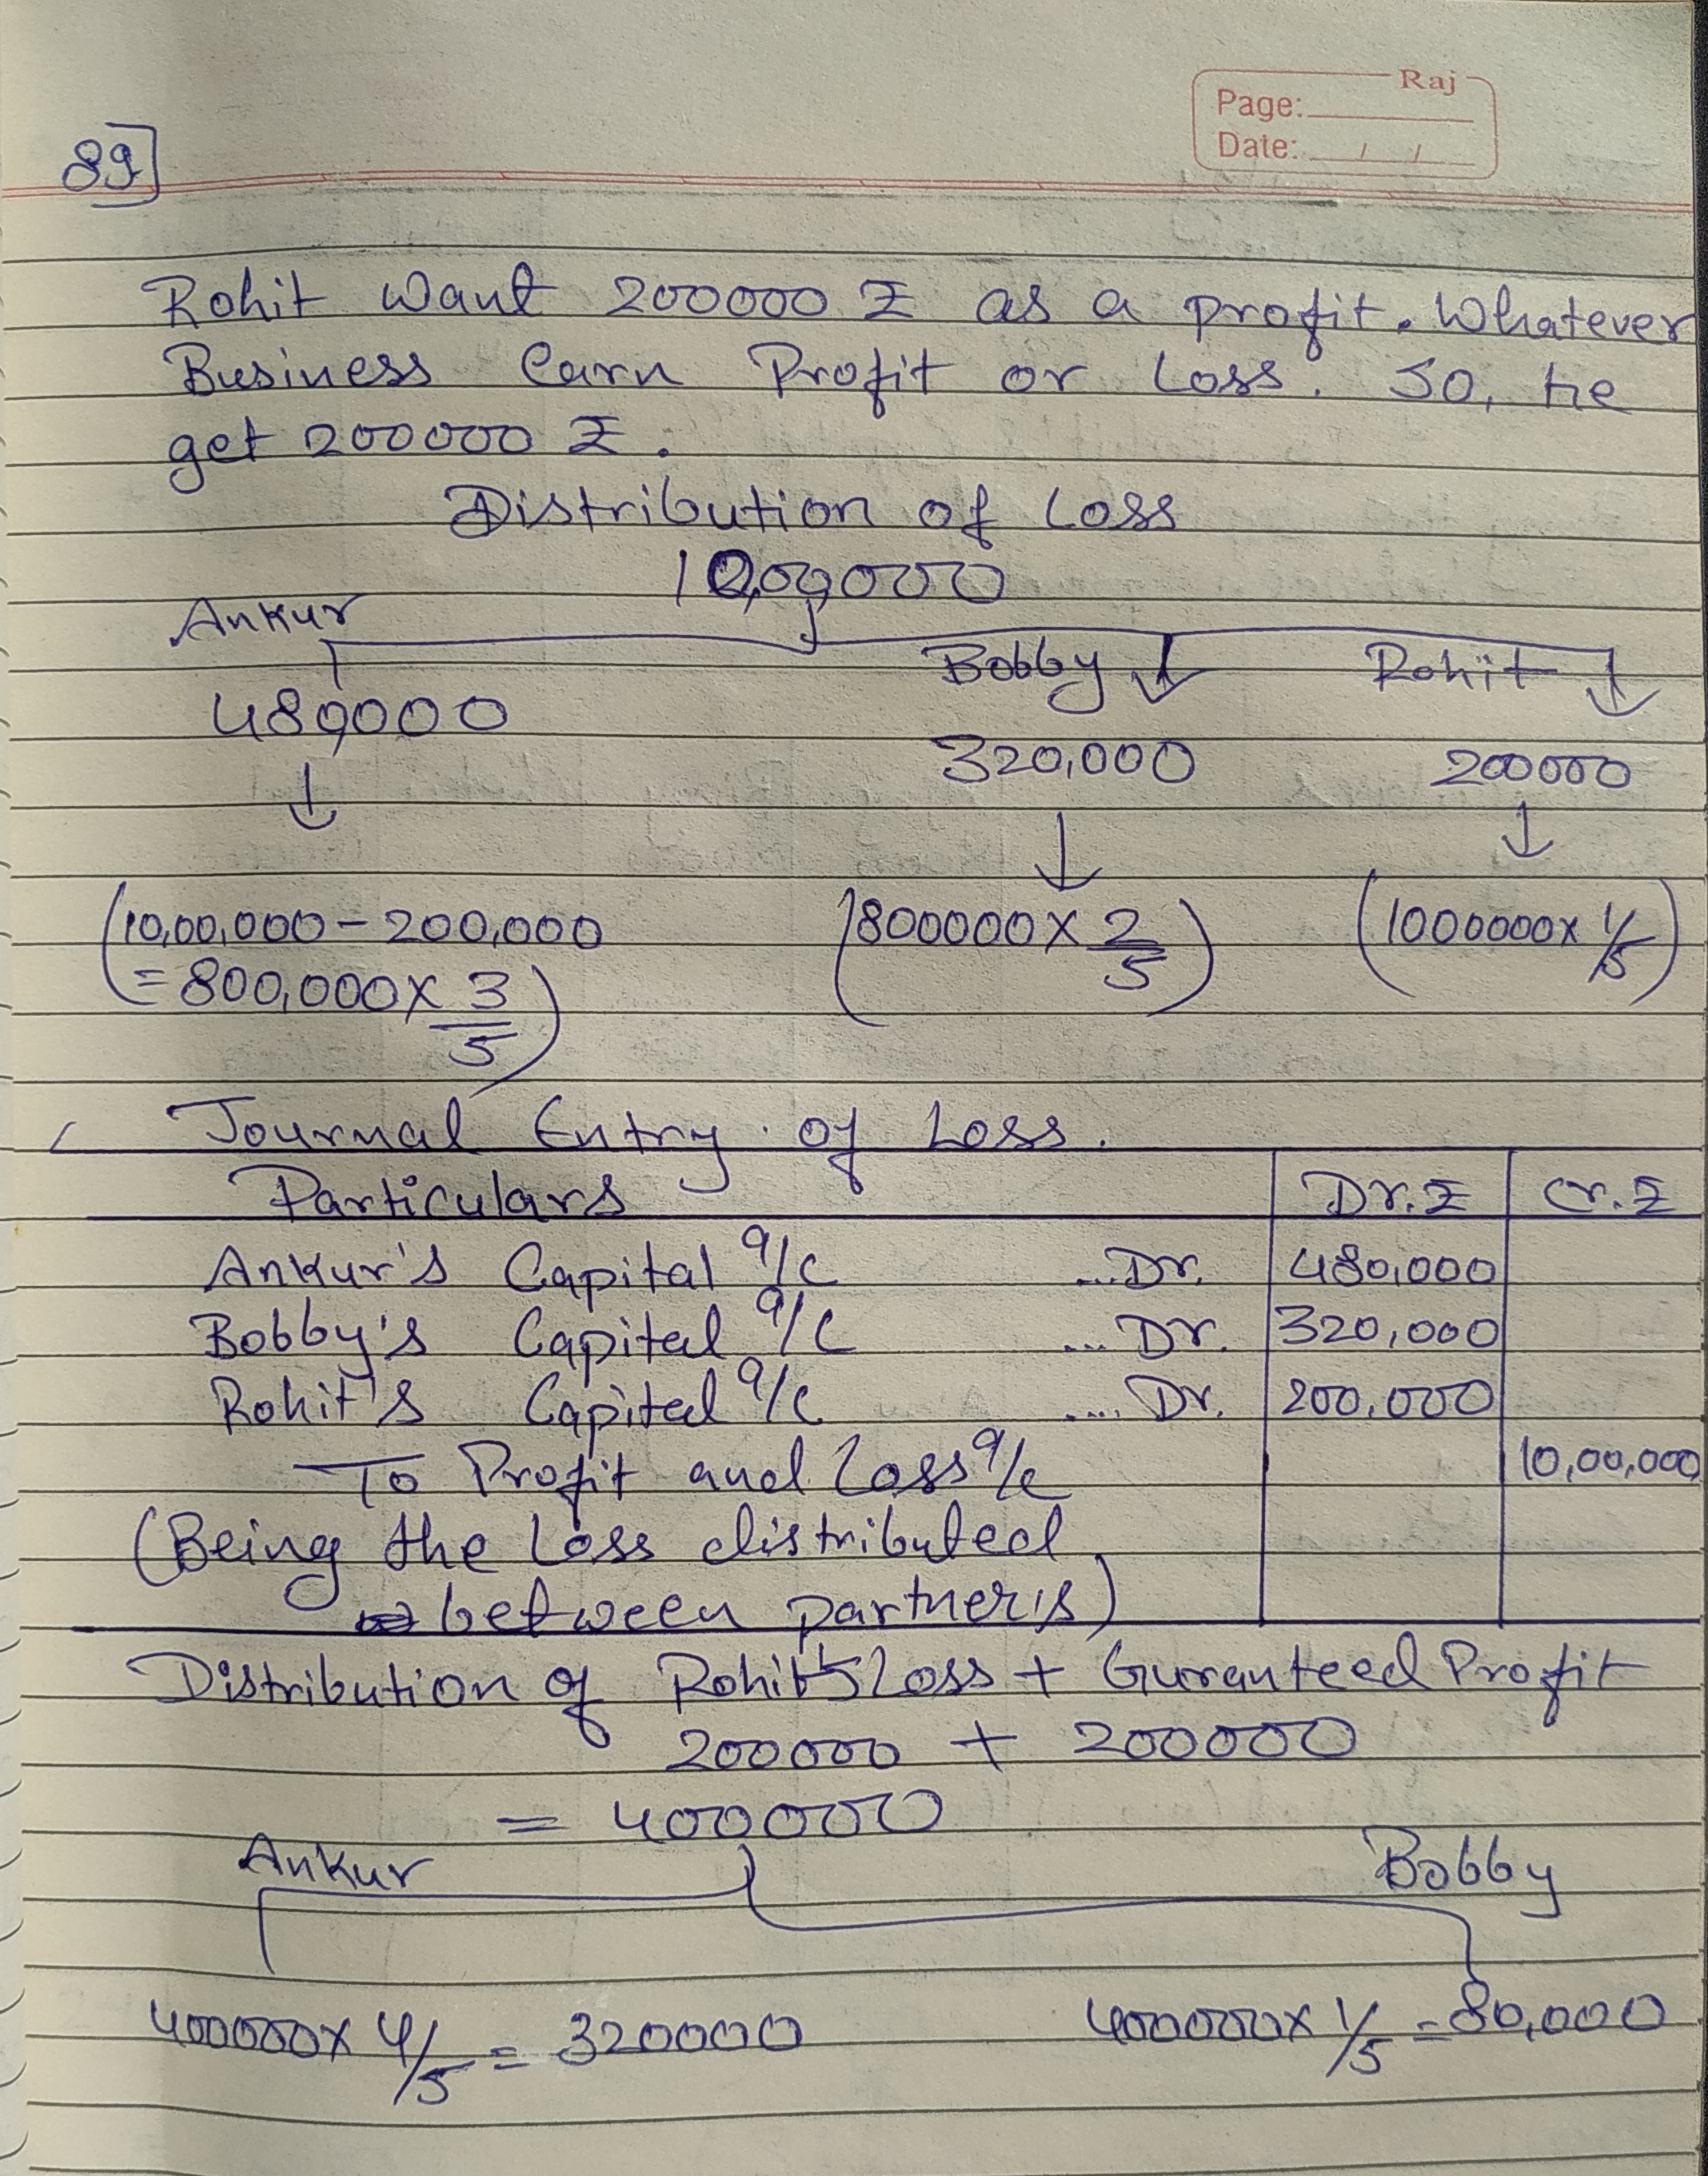 Raj
Page:
Date: / /
89]
Rohit want 200000 ₹ as a profit. Whatever
Business Earn Profit or Loss. So, he
get 200000 ₹.
Distribution of Loss
10,00,000
Ankur
Bobby Rohit
480,000
320,000 200000
(10,00,000 - 200,000 (800000 x 2/5) (1000000x 1/5)
= 800,000 x 3/5)
Journal Entry of Loss.
Particulars Dr. ₹ Cr. ₹
Ankur's Capital a/c ...Dr. 480,000
Bobby's Capital a/c ...Dr. 320,000
Rohit's Capital a/c ....Dr. 200,000
To Profit and Loss a/c 10,00,000
(Being the Loss distributed
between partner's)
Distribution of Rohit's Loss + Guranteed Profit
200000 + 200000
= 400000
Ankur Bobby
400000x 4/5 = 320000 400000x 1/5 = 80,000